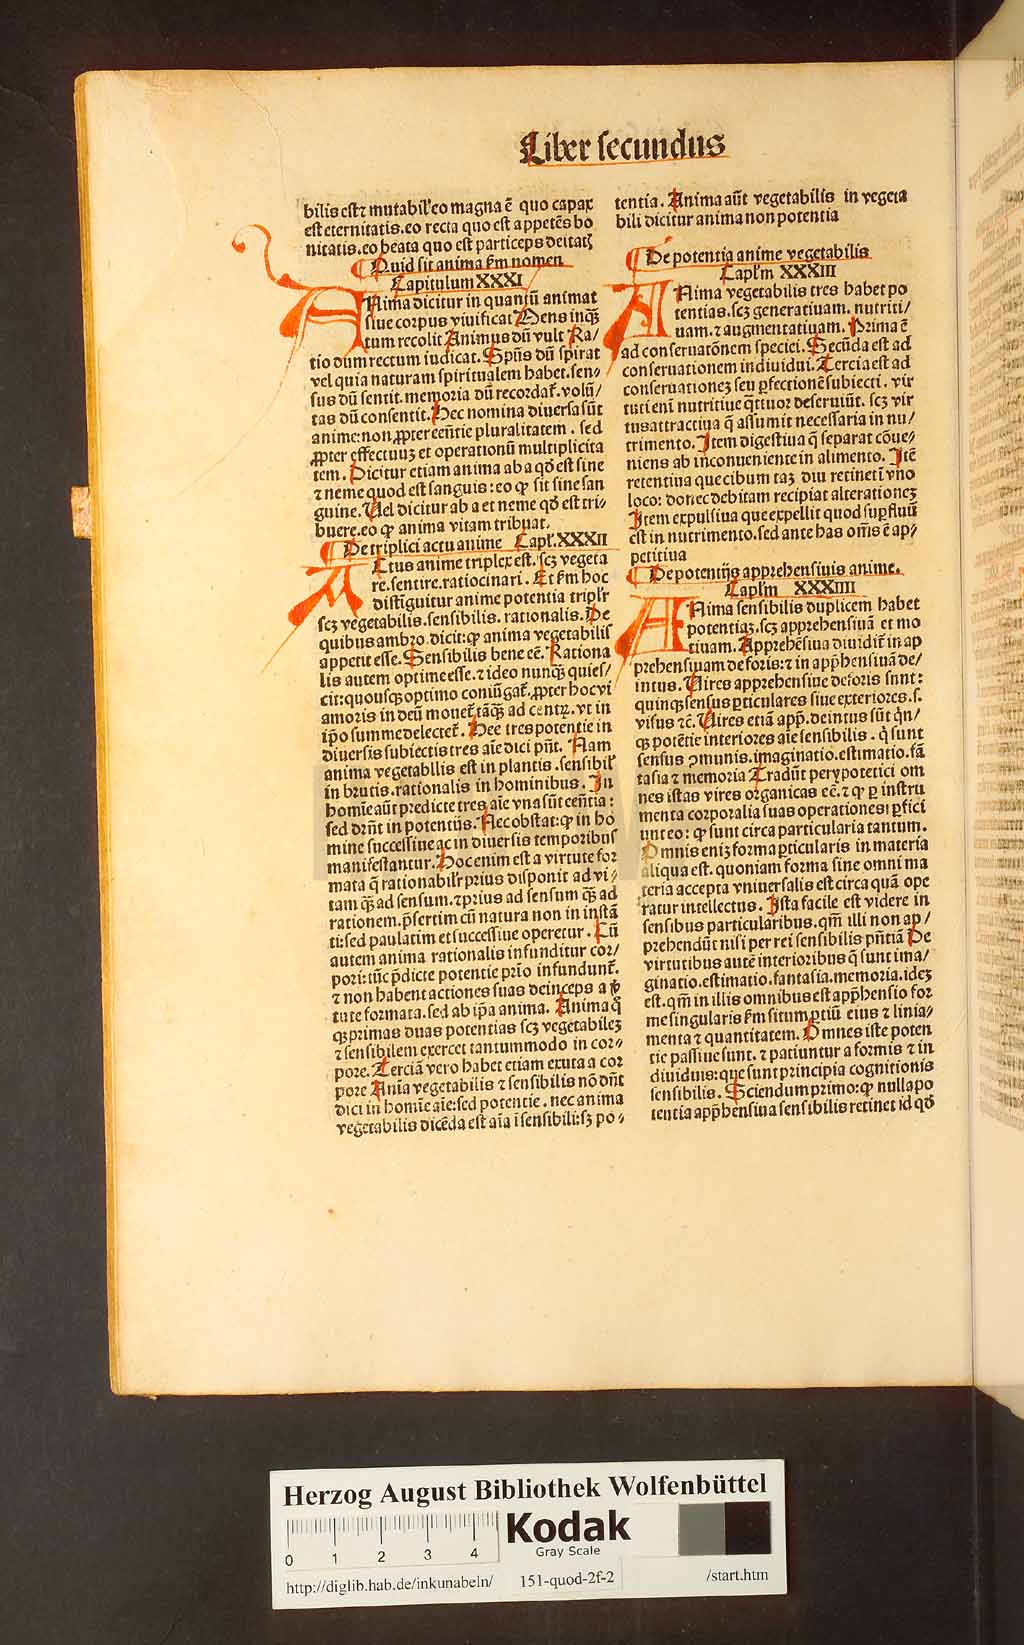 Liber secundus
bilis est ⁊ mutabil̕ eo magna ē quo capax
est eternitatis. eo recta quo est appetēs bo
nitatis. eo beata quo est particeps deitatꝭ
Quid sit anima ẜm nomen
Capitulum XXXI
ANima dicitur in quantū animat
siue corpus viuificat Mens inqȝ
tum recolit Animus dū vult Ra/
tio dum rectum iudicat. Spūs dū spirat
vel quia naturam spiritualem habet. sen⸗
sus dū sentit. memoria dū recordat̃. volū/
tas dū consentit. Hec nomina diuersa sūt
anime: non ꝓpter eēntie pluralitatem. sed
ꝓpter effectuuȝ et operationū multiplicita
tem. Dicitur etiam anima ab a qd̄ est sine
⁊ neme quod est sanguis: eo ꝙ sit sine san
guine. Uel dicitur ab a et neme qd̄ est tri⸗
buere. eo ꝙ anima vitam tribuat.
De triplici actu anime Capl̕. XXXII
ACtus anime triplex est. scȝ vegeta
re. sentire. ratiocinari. Et ẜm hoc
distīguitur anime potentia tripl̕r
scȝ vegetabilis. sensibilis. rationalis. De
quibus ambro. dicit: ꝙ anima vegetabilis
appetit esse. Sensibilis bene eē. Rationa
lis autem optime esse. ⁊ ideo nunqȝ quies/
cit: quousqȝ optimo coniūgat̃. ꝓpter hoc vi
amoris in deū monet̃ tāqȝ ad centꝝ. vt in
ip̄o summe delectet̃. Hee tres potentie in
diuersis subiectis tres aīe dici pn̄t. Nam
anima vegetabilis est in plantis. sensibil̕
in brutis. rationalis in hominibus. In
homīe aūt predicte tres aīe vna sūt eēntia:
sed dr̄nt in potentijs. Nec obstat: ꝙ in ho
mine successiue ac in diuersis temporibus
manifestantur. Hoc enim est a virtute for
mata q̄ rationabil̕r prius disponit ad vi⸗
tam qȝ ad sensum. ⁊ prius ad sensum qȝ ad
rationem. p̄sertim cū natura non in instā
ti: sed paulatim et successiue operetur. Cū
autem anima rationalis infunditur cor/
pori: tūc p̄dicte potentie prīo infundunt̃.
⁊ non habent actiones suas deinceps a v̕
tute formata. sed ab ip̄a anima. Anima q̊
qȝ primas duas potentias scȝ vegetabileȝ
⁊ sensibilem exercet tantummodo in cor⸗
pore. Terciā vero habet etiam exuta a cor
pore Aniā vegetabilis ⁊ sensibilis nō dn̄t
dici in homīe aīe: sed potentie. nec anima
vegetabilis dicēda est aīa ī sensibili: sȝ po⸗
tentia. Anima aūt vegetabilis in vegeta
bili dicitur anima non potentia
De potentia anime vegetabilis
Capl̕m XXXIII
ANima vegetabilis tres habet po
tentias. scȝ generatiuam. nutriti/
uam. ⁊ augmentatiuam. Prima ē
ad conseruatōnem speciei. Secūda est ad
conseruationem indiuidui. Tercia est ad
conseruationeȝ seu ꝑfectionē subiecti. vir
tuti enī nutritiue q̄ttuor deseruiūt. scȝ vir
tus attractiua q̄ assumit necessaria in nu/
trimento. Item digestiua q̄ separat cōue⸗
niens ab inconueniente in alimento. Itē
retentiua que cibum taȝ diu retinet ī vno
loco: donec debitam recipiat alterationeȝ
Item expulsiua que expellit quod suꝑfluū
est in nutrimento. sed ante has om̄s ē ap⸗
petitiua
De potentijs apprehensiuis anime.
Capl̕m XXXIIII
ANima sensibilis duplicem habet
potentiaȝ. scȝ apprehensiuā et mo
tiuam. Apprehēsiua diuidit̃ in ap
prehensiuam de foris: ⁊ in app̄hensiuā de/
intus. Uires apprehensiue deforis sunt:
quinqȝ sensus ꝑticulares siue exteriores. s.
visus ⁊c̄. Uires etiā app̄. deintus sūt q̄n/
qȝ potētie interiores aīe sensibilis. q̄ sunt
sensus ꝯmunis. imaginatio. estimatio. fā
tasia ⁊ memoria Tradūt perypotetici om
nes istas vires organicas eē. ⁊ ꝙ ꝑ instru
menta corporalia suas operationes ꝑfici
unt eo: ꝙ sunt circa particularia tantum.
Omnis eniȝ forma ꝑticularis in materia
aliqua est. quoniam forma sine omni ma
teria accepta vniuersalis est circa quā ope
ratur intellectus. Ista facile est videre in
sensibus particularibus. qm̄ illi non ap/
prehendūt nisi per rei sensibilis pn̄tiā De
virtutibus autē interioribus q̄ sunt ima/
ginatio. estimatio. fantasia. memoria. ideȝ
est. qm̄ in illis omnibus est app̄hensio for
me singularis ẜm situm ꝑtiū eius ⁊ linia⸗
menta ⁊ quantitatem. Omnes iste poten
tie passiue sunt. ⁊ patiuntur a formis ⁊ in
diuiduis: que sunt principia cognitionis
sensibilis. Sciendum primo: ꝙ nulla po
tentia app̄hensiua sensibilis retinet id qd̄
Herzog August Bibliothek Wolfenbüttel
0 1 2 3 4
Kodak
Gray Scale
http://diglib.hab.de/inkunabeln/ 151-quod-2f-2 /start.htm